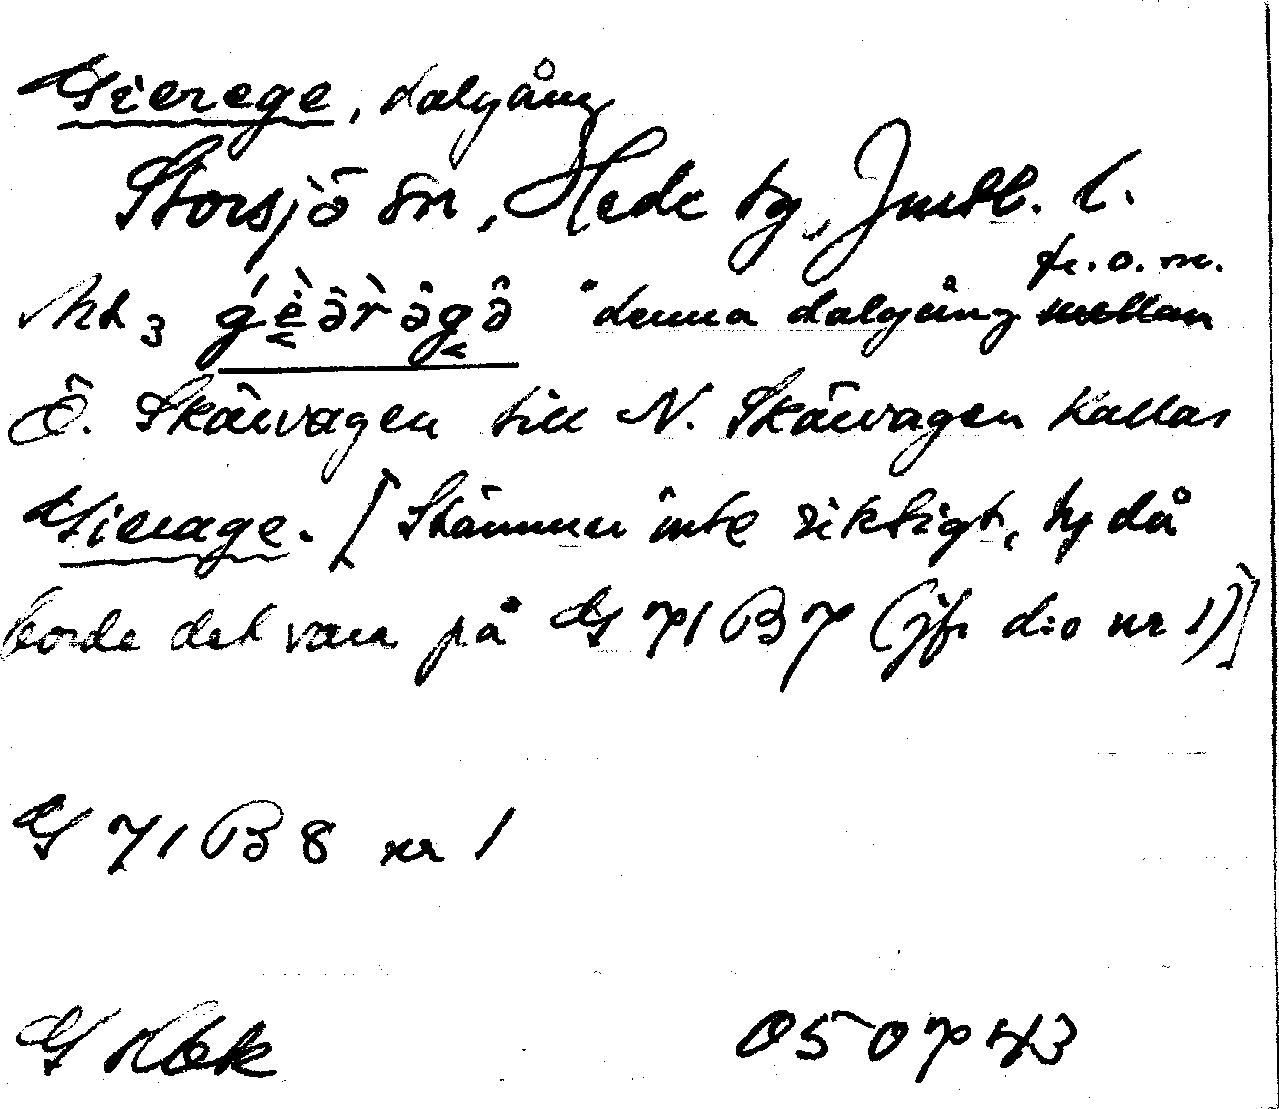 Gierege, dalgång
Storsjö sn, Hede tg, Jmtl. l.
fr. o. m.
denna dalgång mellan
Ö. Skärvagen till N. Skärvagen kallas
Gierage. [Stämmer inte riktigt, ty då
borde det vara på G 71 B 7 (jfr d:o nr 1)]
G 71 B 8 nr 1
G 050743